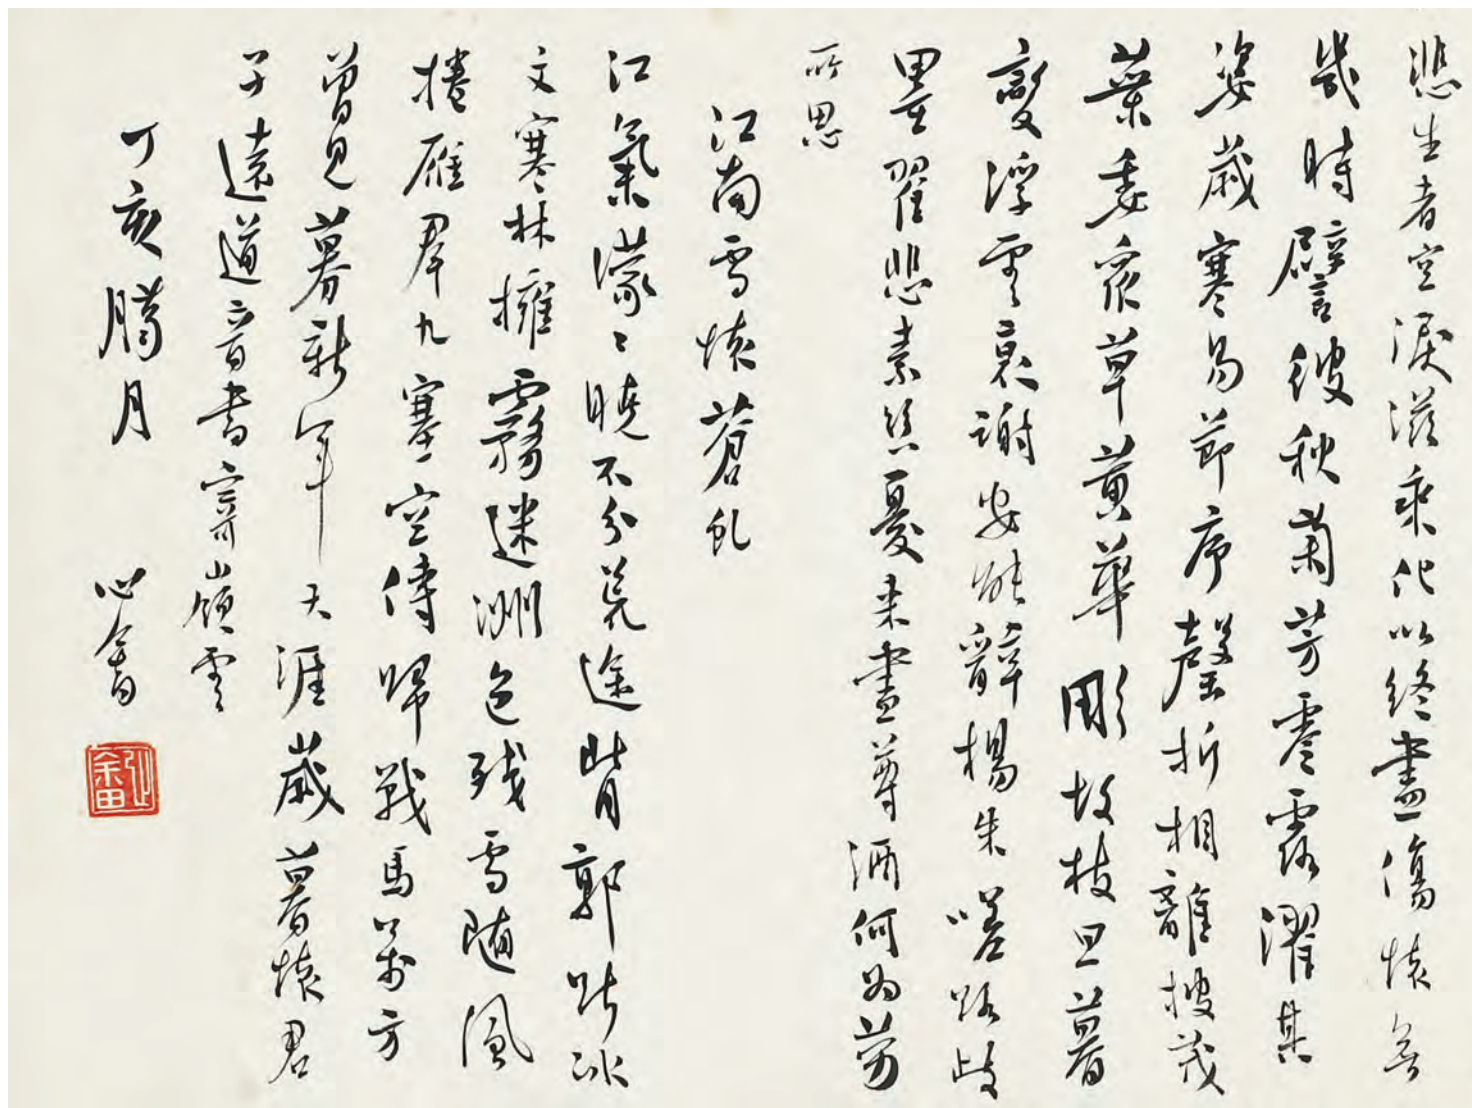 悲生者空淚滋乘化以終盡傷懷無
幾時譬彼秋蘭芳零露濯其
姿歲寒易節序磬折相離披茂
葉委衆草黃華彫故枝旦暮
變浮雲哀謝安能辭楊朱嗟路歧
墨翟悲素絲憂来盡尊酒何為勞
所思
江南雪懷蒼虬
江氣濛〻曉不分荒途背郭踏冰
文寒林擁霧迷洲色殘雪隨風
捲雁羣九塞空傳歸戰馬萬方
曾見暮新年天涯歲暮懷君
子遠道音書寄嶺雲
丁亥臈月
心畬